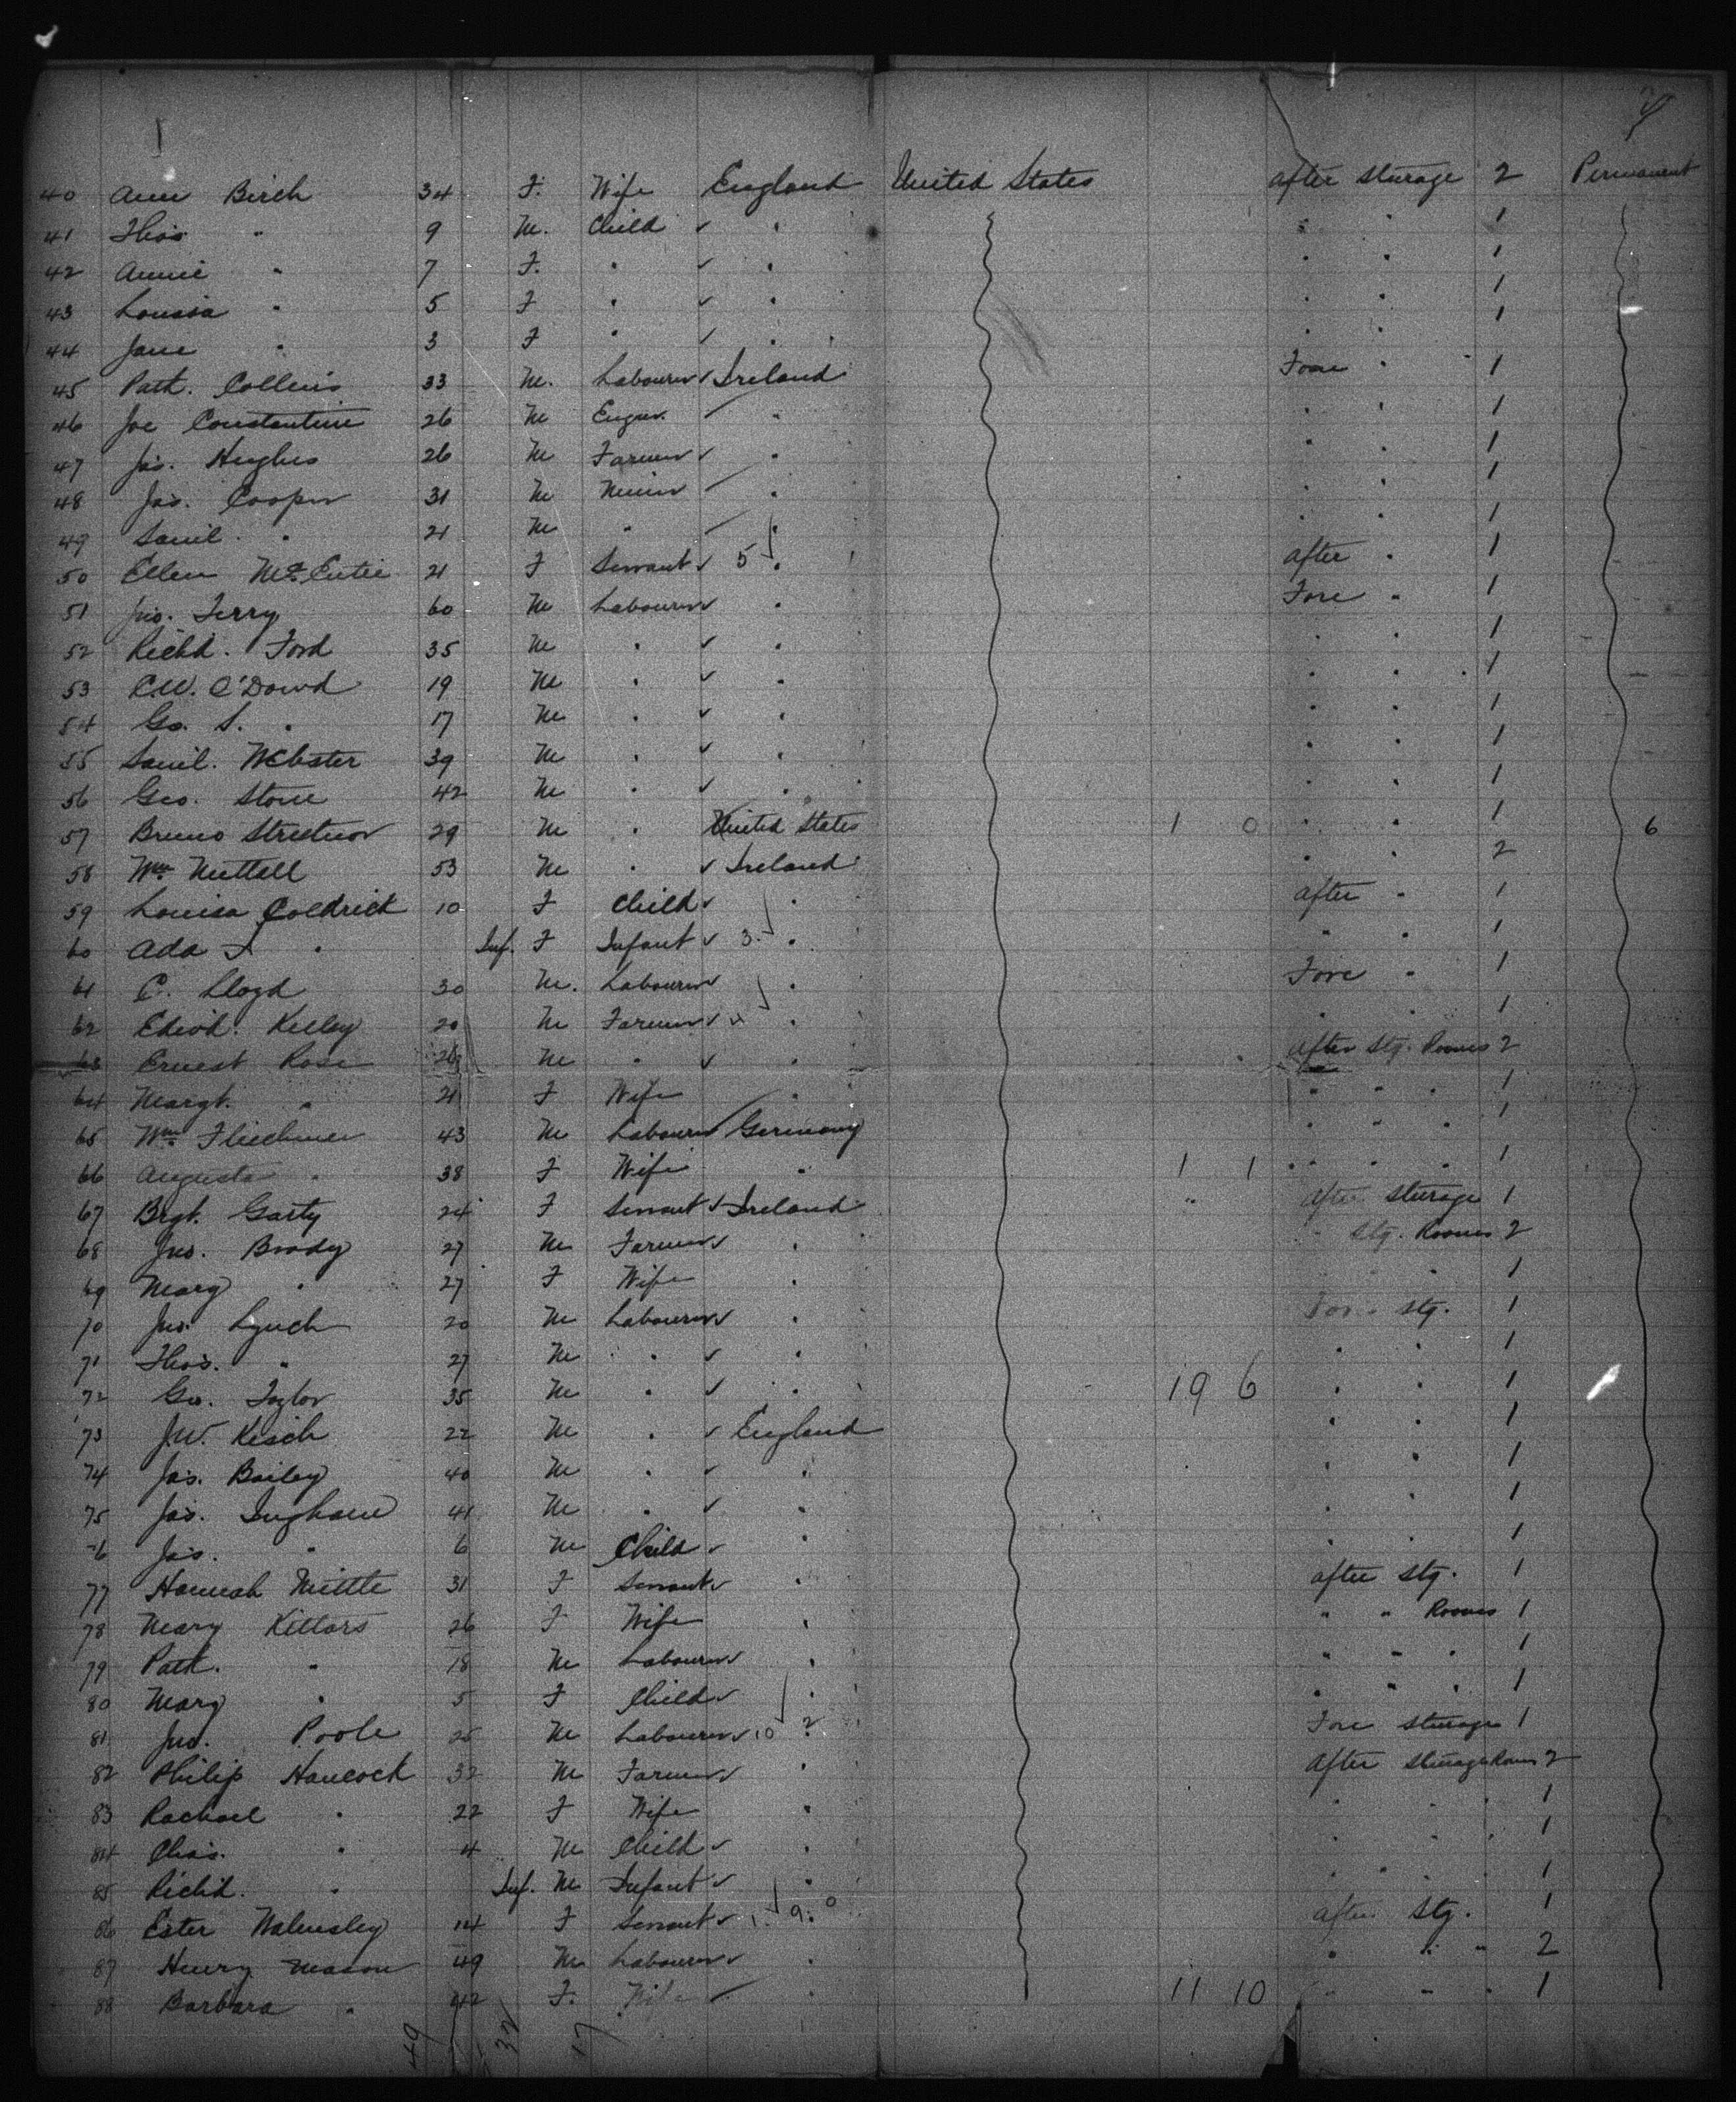 40 Ann Birch 34 F. Wife England United States after sturage 2 Permanent
41 Thos " 9 M. Child ✓ " " " 1
42 Annie " 7 F. " ✓ " " " 1
43 Louisa " 5 F " ✓ " " " 1
44 Jane " 3 F " ✓ " " " 1
45 Patk. Collins 33 M. Labourer ✓ Ireland Fore " 1
46 Joe Constantine 26 M Engnr. ✓ " " " 1
47 Jas. Hughes 26 M Farmer ✓ " " " 1
48 Jas. Cooper 31 M Miner ✓ " " " 1
49 Saml. " 21 M " ✓ " " " 1
50 Ellen 21 F Servant ✓ 5 " after " 1
51 Jno. Terry 60 M Labourer ✓ " Fore " 1
52 Richd. Ford 35 M " ✓ " " " 1
53 C.W. O'Dowd 19 M " ✓ " " " 1
54 Geo. S. " 17 M " ✓ " " " 1
55 Saml. Webster 39 M " ✓ " " " 1
56 Geo. Stone 42 M " ✓ " " " 1
57 Bruno 29 M " United States 1 0 " " 1 6
58 Wm. Nuttall 53 M " ✓ Ireland " " 2
59 Louisa Coldrick 10 F Child ✓ " after " 1
60 Ada F " Inf. F Infant ✓ 3 " " " 1
61 C. Lloyd 30 M. Labourer ✓ " Fore " 1
62 Edwd. Kelley 20 M Farmer ✓ " " " 1
63 Ernest Rose 26 M " ✓ " after Stg. Rooms 2
64 Margt. " 21 F Wife " " " " 1
65 Wm. 43 M Labourer ✓ Germany " " " 1
66 Augusta " 38 F Wife " 1 1 " " " 1
67 Brgt. Garty 24 F Servant ✓ Ireland " after sturage 1
68 Jno. Brody 27 M Farmer ✓ " " Stg. Rooms 2
69 Mary " 27 F Wife " " " " 1
70 Jno. Lynch 20 M Labourer ✓ " Fore Stg. 1
71 Thos. " 27 M " ✓ " " " 1
72 Geo. Taylor 35 M " ✓ " 19 6 " " 1
73 J.W. Kisch 22 M " ✓ England " " 1
74 Jas. Bailey 40 M " ✓ " " " 1
75 Jas. Ingham 41 M " ✓ " " " 1
76 Jas. " 6 M Child ✓ " " " 1
77 Hannah 31 F Servant ✓ " after Stg. 1
78 Mary Killars 26 F Wife " " " Rooms 1
79 Patk. " 18 M Labourer ✓ " " " " 1
80 Mary " 5 F Child ✓ " " " " 1
81 Jno. Poole 25 M Labourer ✓ 10 ? Fore sturage 1
82 Philip Hancock 32 M Farmer ✓ " After Sturage Rooms 2
83 Rachael " 22 F Wife " " " " 1
84 Chas. " 4 M Child ✓ " " " " 1
85 Richd. " Inf. M Infant ✓ " " " " 1
86 Ester Walmsley 14 F Servant ✓ 1. 9. 0 after Stg. 1
87 Henry Mason 49 M Labourer ✓ " " " " 2
88 Barbara " 42 F. Wife ✓ " 11 10 " " " 1
49 32 17